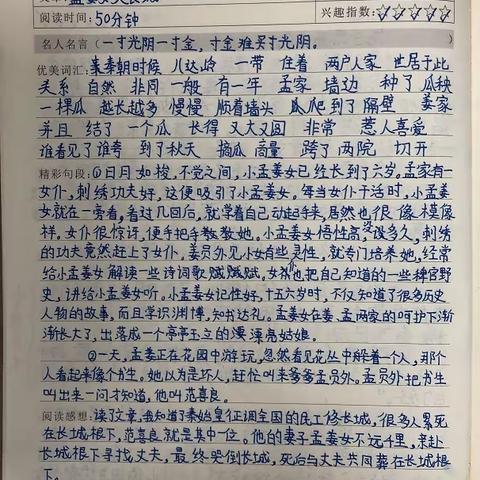 阅读时间:50分钟 兴趣指数:☆☆☆☆☆
名人名言(一寸光阴一寸金,寸金难买寸光阴。
优美词汇:秦朝时候 八达岭 一带 住着 两户人家 世居于此
关系 自然 非同一般 有一年 孟家 墙边 种了 瓜秧
一棵瓜 越长越多 慢慢 顺着墙头 瓜爬到了 隔壁 姜家
并且 结了 一个瓜 长得 又大又圆 非常 惹人喜爱
谁看见了谁夸 到了秋天 摘瓜 商量 跨了 两院 切开
精彩句段:①日月如梭,不觉之间,小孟姜女已经长到了六岁。孟家有一
女仆,刺绣功夫好,这便吸引了小孟姜女。每当女仆干活时,小孟姜
女就在一旁看,看过几回后,就学着自己动起手来,居然也很像模像
样,女仆很惊讶,便手把手教教她。小孟姜女悟性高,没多久,刺绣
的功夫竟然赶上了女仆。姜员外见小女有些灵性,就专门培养她,经常
给小孟姜女解读一些诗词歌赋,女仆也把自己知道的一些稗官野
史,讲给小孟姜女听。小孟姜女记性好,十五六岁时,不仅知道了很多历史
人物的故事,而且学识渊博,知书达礼。孟姜女在姜、孟两家的呵护下渐
渐长大了,出落成一个亭亭玉立的漂亮姑娘。
②一天,孟姜正在花园中游玩,忽然看见花丛中躲着一个人,那个
人看起来像个书生。她以为是坏人,赶忙叫来爹爹孟员外。孟员外把书生
叫出来一问才知道,他叫范喜良。
阅读感想:读了文章,我知道了秦始皇征调全国的民工修长城,很多人累死
在长城根下,范喜良就是其中一位。他的妻子孟姜女不远千里,来赴
长城根下寻找丈夫,最终哭倒长城,死后与丈夫共同葬在长城根
下。